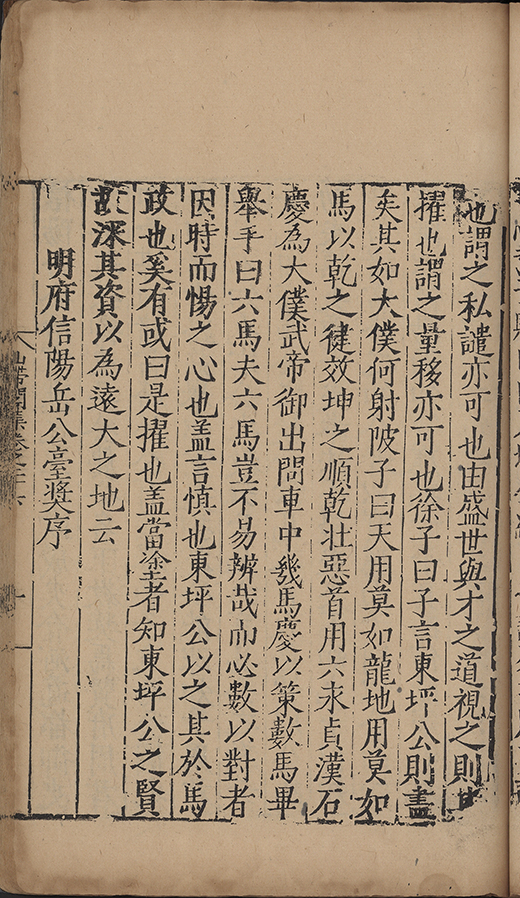 也謂之私譴亦可也由盛世與才之道視之則
擢也謂之量移亦可也徐子曰子言東坪公則盡
矣其如大僕何射陂子曰天用莫如龍地用莫如
馬以乾之徤效坤之順乾壯惡首用六求貞漢石
慶為大僕武帝御出問車中幾馬慶以策數馬畢
舉手曰六馬夫六馬豈不易辨哉而必數以對者
因時而惕之心也盖言慎也東坪公以之其於馬
政也奚有或曰是擢也盖當塗者知東坪公之賢
故深其資以為遠大之地云
明府信陽岳公臺奬序